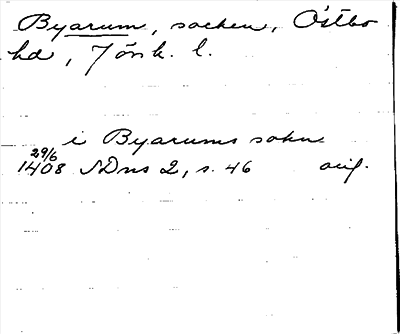 Byarum, socken, Östbo
hd, Jönk. l.
i Byarums sokn
29/6
1408 SDns 2, s. 46 orig.